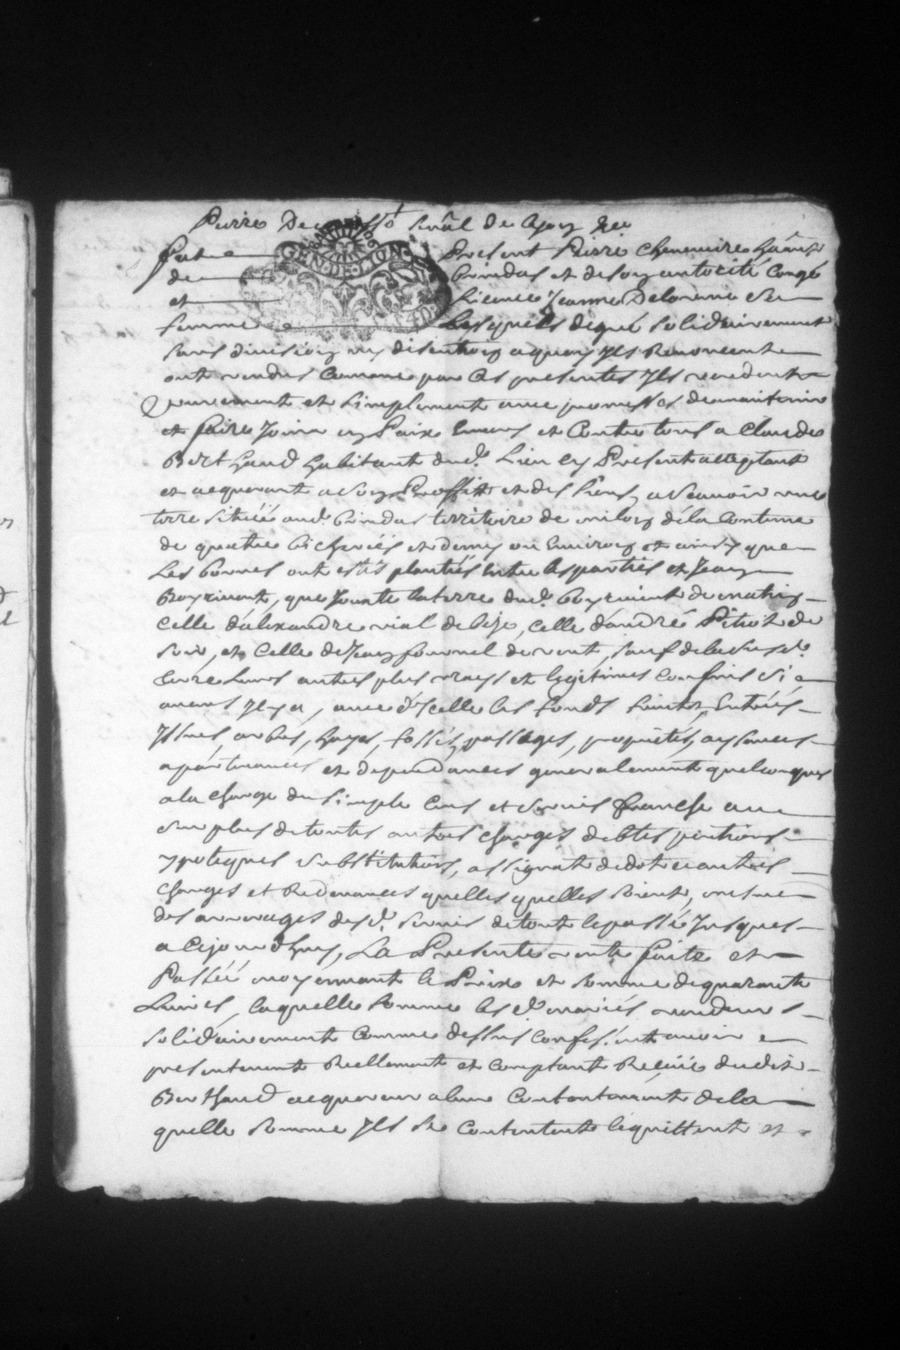 Pierre De
GEN.DE.LYON
fut Present Pierre cheneuire
de brindas et de soy autorité Congé
et Licence Jeanne Delorme sa
femme Lesquels de gré solidairement
sans division ny disention a quoy Ils Renoncent
ont vendus Comme par Ces presentes Ils vendent
purement et simplement avec promesses de maintenir
et faire Jouir en Paix Enuers et Contre tous a Claude
Berthaud habitant dud. Lieu cy Present acceptant
et acquerant a soy Proffit et des siens, a sçauoir une
terre située aud. brindas territoire de de la Contenue
de quatre bicherées et demy ou Enuiron et ainsy que
Les bornes ont estés plantés Entre les parties et Jean
Boyriuent, que Jouxte la terre dud. boyriuent de matin
celle d'alexandre vial de bize, celle d'andré Pitiot de
soir, et Celle de Jean fournel de vent, sauf de la susd.
terre Leurs autres plus vrays et legitimes Confins si
aucuns Il y a, avec d'icelle les fonds Entrées
Issues arbres, hayes, fossés, passages, proprietés, aysances
apartenances et dependances generalement quelconques
a la charge du simple Cens et seruis franche au
surplus de toutes autres charges debtes pentions
ypoteques substitutions, assignat de dot et autres
charges et Redeuances quelles quelles soient, mesme
des arrerages desd. seruis de tout le passé Jusques
a Cejourd'huy, La Presente vente faite et
Passée moyennant le Prix et somme de quarante
Liures, laquelle somme les d. mariés vendeurs
solidairement Comme dessus Confessent auoir
presentement Reellement et Comptant Reçüe dudit
Berthaud acquereur a leur Contentement de la
quelle somme Ils se Contentent le quittent et